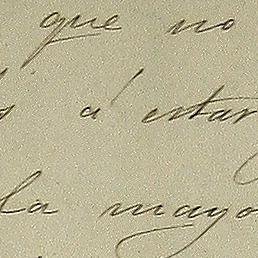 que no
á estar
la mayo